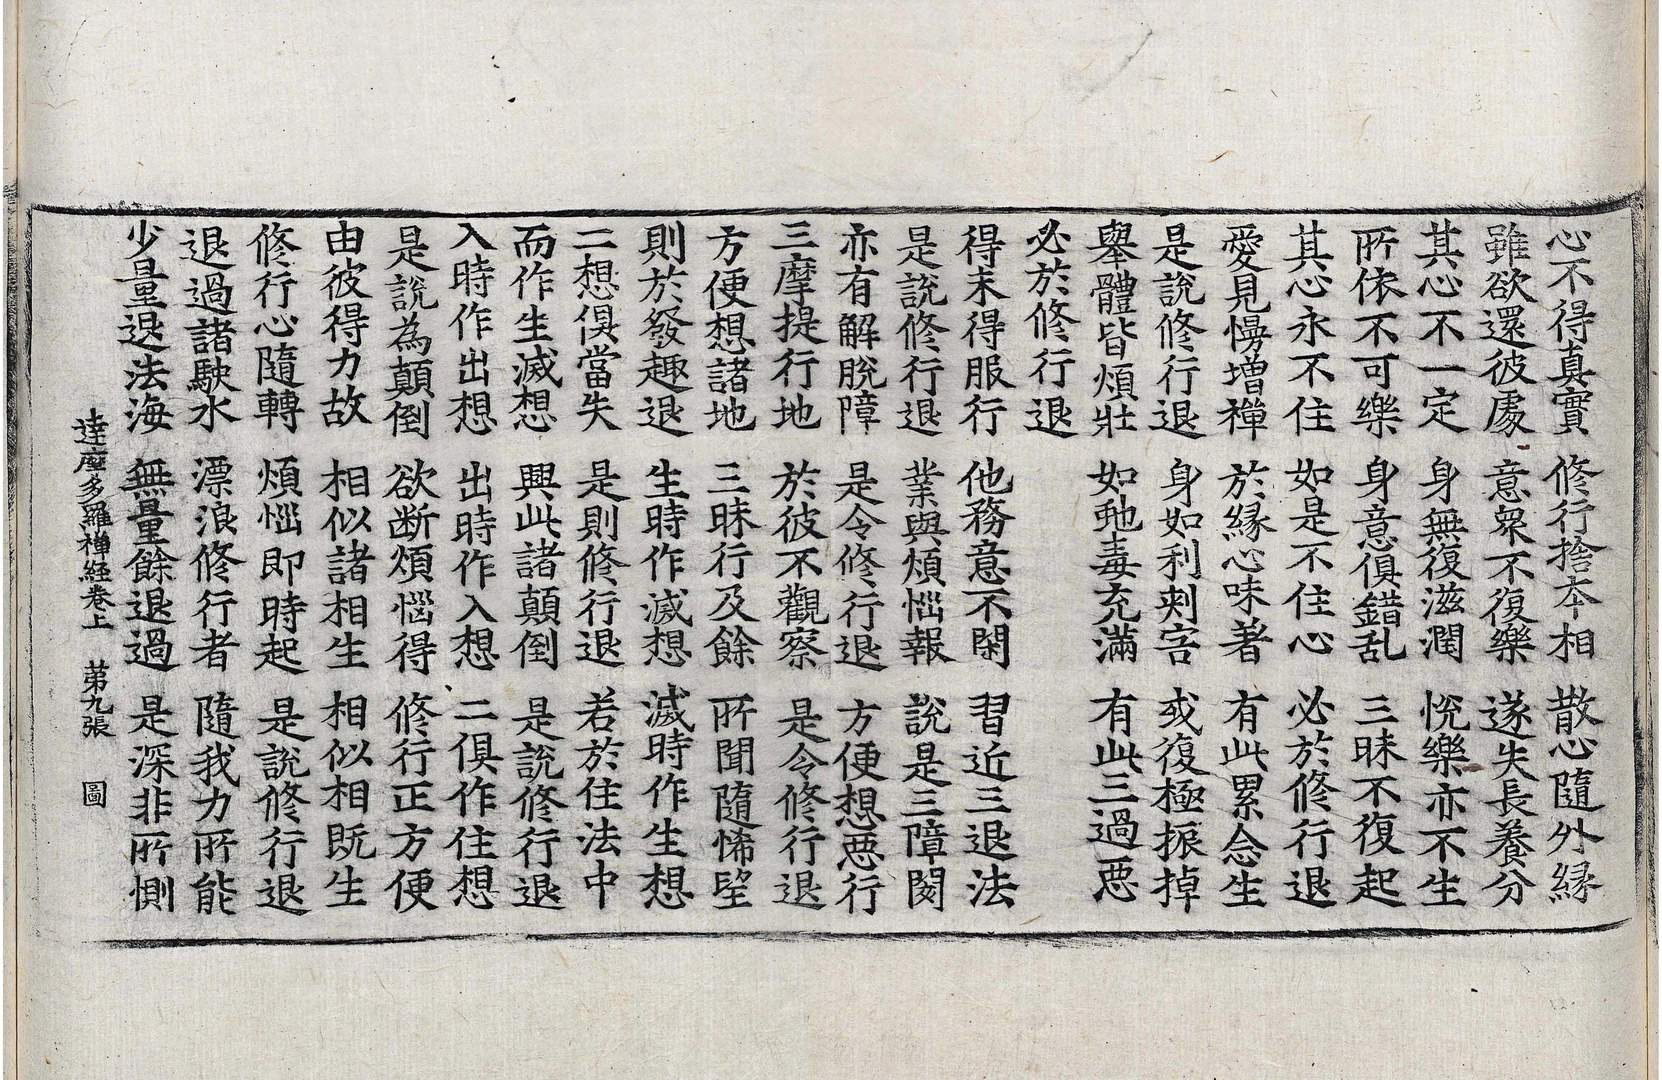 心不得真實 修行捨本相 散心隨外緣
雖欲還彼處 意衆不復樂 遂失長養分
其心不一定 身無復滋潤 恱樂亦不生
所依不可樂 身意俱錯乱 三昧不復起
其心永不住 如是不住心 必於修行退
愛見慢增禪 於緣心味著 有此累念生
是說修行退 身如利刺害 或復極振掉
舉體皆煩壯 如虵毒充滿 有此三過悪
必於修行退
得末得服行 他務意不閑 習近三退法
是說修行退 業與煩惱報 說是三障閡
亦有解脫障 是令修行退 方便想悪行
三摩提行地 於彼不觀察 是令修行退
方便想諸地 三昧行及餘 所聞隨悕望
則於發趣退 生時作滅想 滅時作生想
二想俱當失 是則修行退 若於住法中
而作生滅想 興此諸顛倒 是說修行退
入時作出想 出時作入想 二俱作住想
是說為顛倒 欲断煩惱得 修行正方便
由彼得力故 相似諸相生 相似相既生
修行心隨轉 煩惱即時起 是說修行退
退過諸駛水 漂浪修行者 隨我力所能
少量退法海 無量餘退過 是深非所惻
達磨多羅禪経卷上 苐九張 圖